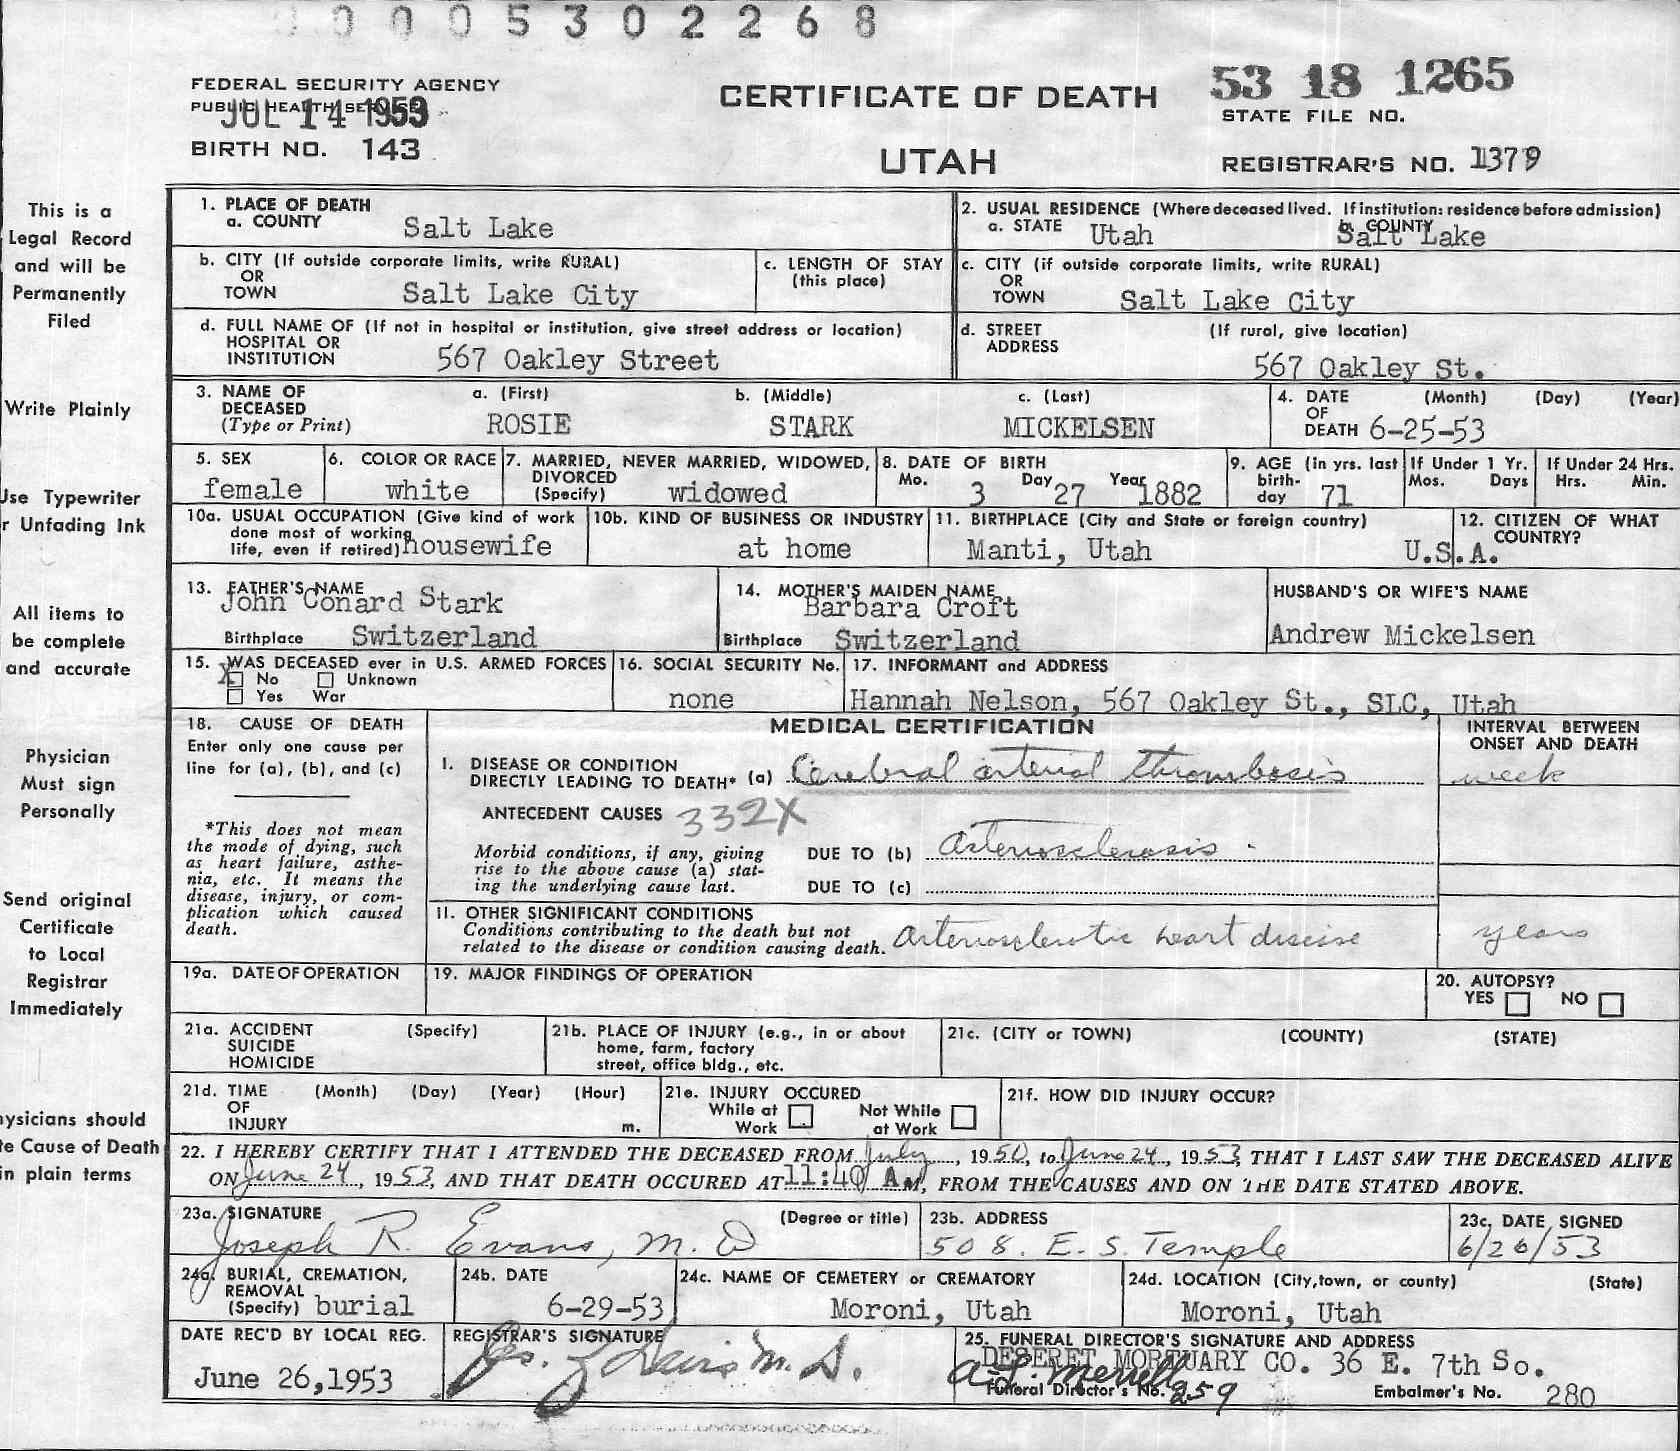 0 0 0 0 5 3 0 2 2 6 8
FEDERAL SECURITY AGENCY
PUBLIC HEALTH SERVICE
JUL 14 1953
BIRTH NO. 143
CERTIFICATE OF DEATH
UTAH
53 18 1265
STATE FILE NO.
REGISTRAR'S NO. 1379
This is a
Legal Record
and will be
Permanently
Filed
Write Plainly
Use Typewriter
r Unfading Ink
All items to
be complete
and accurate
Physician
Must sign
Personally
Send original
Certificate
to Local
Registrar
Immediately
hysicians should
te Cause of Death
in plain terms
1. PLACE OF DEATH
a. COUNTY Salt Lake
2. USUAL RESIDENCE (Where deceased lived. If institution: residence before admission)
a. STATE Utah b. COUNTY Salt Lake
b. CITY (If outside corporate limits, write RURAL)
OR
TOWN Salt Lake City
c. LENGTH OF STAY
(this place)
c. CITY (if outside corporate limits, write RURAL)
OR
TOWN Salt Lake City
d. FULL NAME OF (If not in hospital or institution, give street address or location)
HOSPITAL OR
INSTITUTION 567 Oakley Street
d. STREET (If rural, give location)
ADDRESS
567 Oakley St.
3. NAME OF
DECEASED
(Type or Print)
a. (First) b. (Middle) c. (Last)
ROSIE STARK MICKELSEN
4. DATE (Month) (Day) (Year)
OF
DEATH 6-25-53
5. SEX
female
6. COLOR OR RACE
white
7. MARRIED, NEVER MARRIED, WIDOWED,
DIVORCED
(Specify) widowed
8. DATE OF BIRTH
Mo. 3 Day 27 Year 1882
9. AGE (in yrs. last
birth-
day 71
If Under 1 Yr.
Mos. Days
If Under 24 Hrs.
Hrs. Min.
10a. USUAL OCCUPATION (Give kind of work
done most of working
life, even if retired) housewife
10b. KIND OF BUSINESS OR INDUSTRY
at home
11. BIRTHPLACE (City and State or foreign country)
Manti, Utah
12. CITIZEN OF WHAT
COUNTRY?
U.S.A.
13. FATHER'S NAME
John Conard Stark
Birthplace Switzerland
14. MOTHER'S MAIDEN NAME
Barbara Croft
Birthplace Switzerland
HUSBAND'S OR WIFE'S NAME
Andrew Mickelsen
15. WAS DECEASED ever in U.S. ARMED FORCES
X No Unknown
Yes War
16. SOCIAL SECURITY No.
none
17. INFORMANT and ADDRESS
Hannah Nelson, 567 Oakley St., SLC, Utah
18. CAUSE OF DEATH
Enter only one cause per
line for (a), (b), and (c)
*This does not mean
the mode of dying, such
as heart failure, asthe-
nia, etc. It means the
disease, injury, or com-
plication which caused
death.
MEDICAL CERTIFICATION
INTERVAL BETWEEN
ONSET AND DEATH
I. DISEASE OR CONDITION
DIRECTLY LEADING TO DEATH* (a) Cerebral arterial thrombosis week
ANTECEDENT CAUSES 332X
Morbid conditions, if any, giving
rise to the above cause (a) stat-
ing the underlying cause last.
DUE TO (b) Arteriosclerosis
DUE TO (c)
II. OTHER SIGNIFICANT CONDITIONS
Conditions contributing to the death but not
related to the disease or condition causing death. Arteriosclerotic heart disease years
19a. DATE OF OPERATION
19. MAJOR FINDINGS OF OPERATION
20. AUTOPSY?
YES NO
21a. ACCIDENT (Specify)
SUICIDE
HOMICIDE
21b. PLACE OF INJURY (e.g., in or about
home, farm, factory
street, office bldg., etc.
21c. (CITY or TOWN) (COUNTY) (STATE)
21d. TIME (Month) (Day) (Year) (Hour)
OF
INJURY m.
21e. INJURY OCCURED
While at Work Not While at Work
21f. HOW DID INJURY OCCUR?
22. I HEREBY CERTIFY THAT I ATTENDED THE DECEASED FROM July, 1950, to June 24, 1953, THAT I LAST SAW THE DECEASED ALIVE
ON June 24, 1953, AND THAT DEATH OCCURED AT 11:40 A M, FROM THE CAUSES AND ON THE DATE STATED ABOVE.
23a. SIGNATURE (Degree or title)
Joseph R. Evans, M. D
23b. ADDRESS
508. E. S. Temple
23c. DATE SIGNED
6/26/53
24a. BURIAL, CREMATION,
REMOVAL
(Specify) burial
24b. DATE
6-29-53
24c. NAME OF CEMETERY or CREMATORY
Moroni, Utah
24d. LOCATION (City, town, or county) (State)
Moroni, Utah
DATE REC'D BY LOCAL REG.
June 26, 1953
REGISTRAR'S SIGNATURE
Davis M. D.
25. FUNERAL DIRECTOR'S SIGNATURE AND ADDRESS
DESERET MORTUARY CO. 36 E. 7th So.
Merrell
Funeral Director's No. 259 Embalmer's No. 280